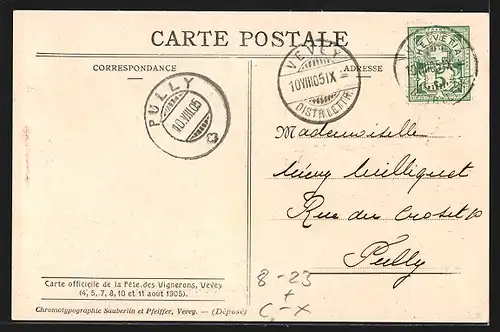 CARTE POSTALE
CORRESPONDANCE
ADRESSE
PULLY
10.VIII.05
VEVEY
10VIII05IX
DISTR.LETTR.
HELVETIA
5
Mademoiselle
Milliquet
Rue du Croset 10
Pully
8-23
+
C,-X
Carte officielle de la Fête des Vignerons, Vevey
(4, 5, 7, 8, 10 et 11 août 1905).
Chromotypographie Säuberlin et Pfeiffer, Vevey. — (Déposé)